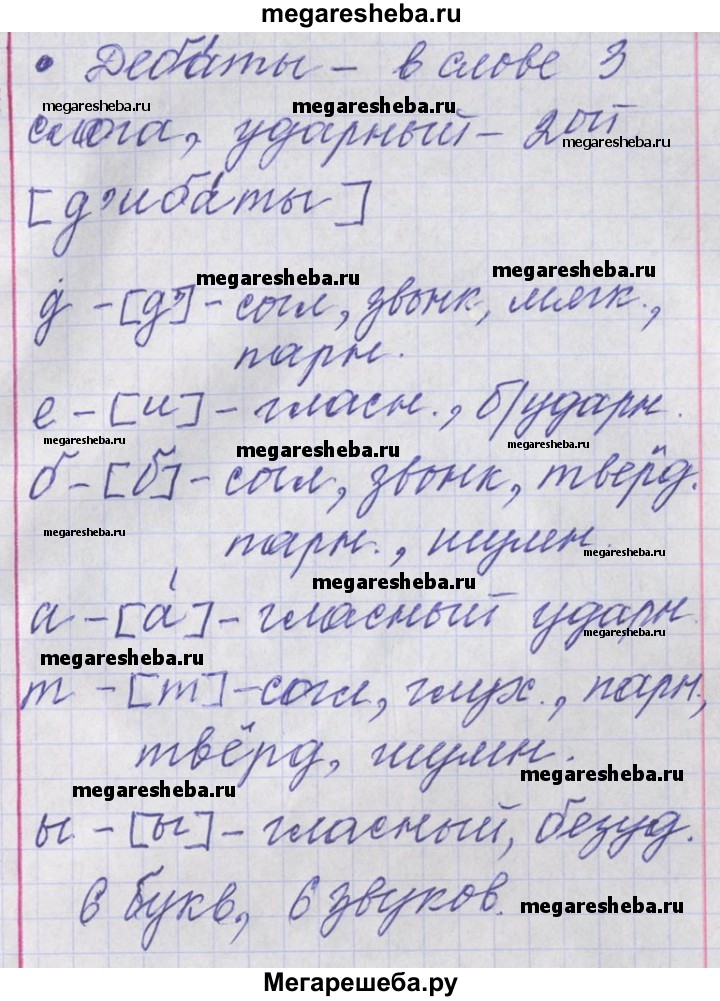 megaresheba.ru
• Деба́ты – в слове 3
megaresheba.ru megaresheba.ru
слога, ударный – 2ой
megaresheba.ru
[д'иба́ты]
megaresheba.ru megaresheba.ru
д – [д'] – согл, звонк, мягк.,
парн.
е – [и] – гласн., б/ударн.
megaresheba.ru megaresheba.ru megaresheba.ru
б – [б] – согл, звонк, твёрд.
megaresheba.ru
парн., шумн.
megaresheba.ru
megaresheba.ru
а – [а́] – гласный ударн.
megaresheba.ru
megaresheba.ru
т – [т] – согл, глух., парн,
твёрд, шумн.
megaresheba.ru
megaresheba.ru
ы – [ы] – гласный, безуд.
6 букв, 6 звуков.
megaresheba.ru
Мегарешеба.ру